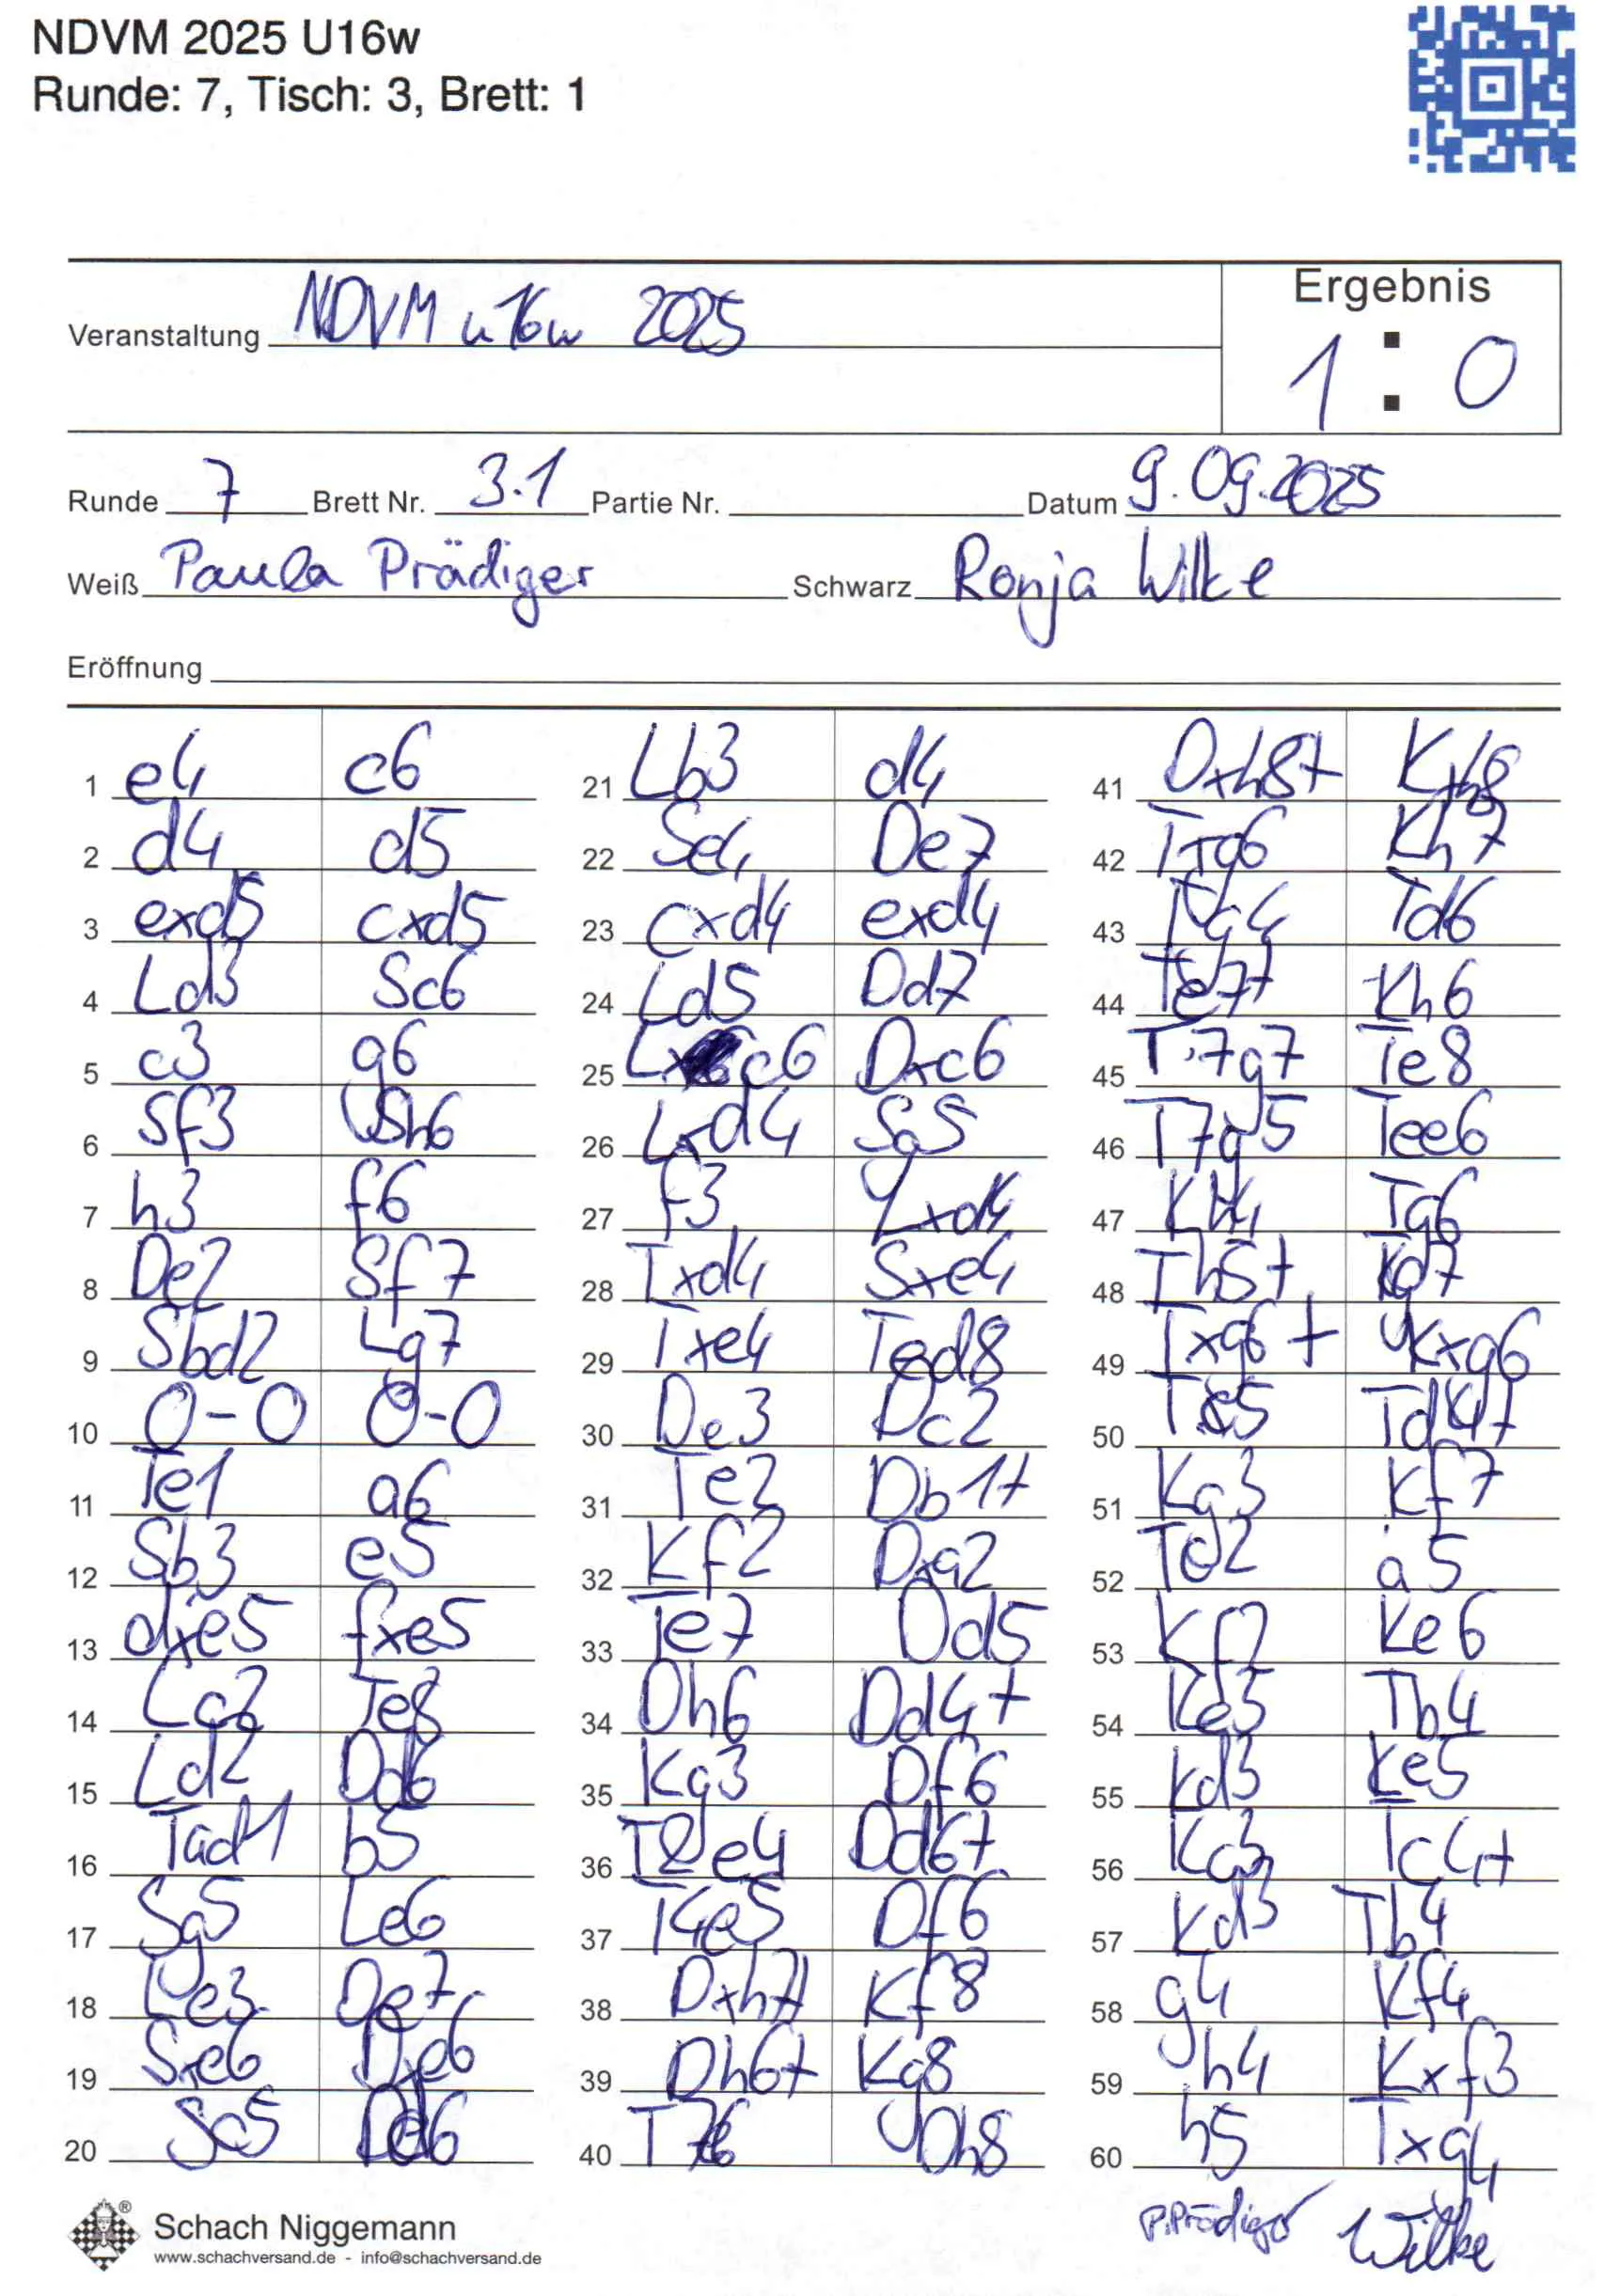 NDVM 2025 U16w
Runde: 7, Tisch: 3, Brett: 1
Veranstaltung NDVM u16w 2025
Ergebnis
1 : 0
Runde 7 Brett Nr. 3.1 Partie Nr. Datum 9.09.2025
Weiß Paula Prädiger Schwarz Ronja Wilke
Eröffnung
1 e4 c6
2 d4 d5
3 exd5 cxd5
4 Ld3 Sc6
5 c3 g6
6 Sf3 Sh6
7 h3 f6
8 De2 Sf7
9 Sbd2 Lg7
10 0-0 0-0
11 Te1 a6
12 Sb3 e5
13 dxe5 fxe5
14 Lc2 Te8
15 Ld2 Dd6
16 Tad1 b5
17 Sg5 Le6
18 Le3 De7
19 Sxe6 Dxe6
20 Sc5 Dd6
21 Lb3 d4
22 Se4 De7
23 cxd4 exd4
24 Ld5 Dd7
25 Lxc6 Dxc6
26 Lxd4 Sg5
27 f3 Lxd4
28 Txd4 Sxe4
29 Txe4 Ted8
30 De3 Dc2
31 Te2 Db1+
32 Kf2 Dxa2
33 Te7 Dd5
34 Dh6 Dd4+
35 Kg3 Df6
36 T2e4 Dd6+
37 T4e5 Df6
38 Dxh7+ Kf8
39 Dh6+ Kg8
40 T7e6 Dh8
41 Dxh8+ Kxh8
42 Txg6 Kh7
43 Tg4 Td6
44 Te7+ Kh6
45 T7g7 Te8
46 T7g5 Tee6
47 Kh4 Tg6
48 Th5+ Kg7
49 Txg6+ Kxg6
50 Te5 Td4+
51 Kg3 Kf7
52 Te2 a5
53 Kf2 Ke6
54 Ke3 Tb4
55 Kd3 Ke5
56 Kc3 Tc4+
57 Kd3 Tb4
58 g4 Kf4
59 h4 Kxf3
60 h5 Txg4
P.Prädiger Wilke
Schach Niggemann
www.schachversand.de - info@schachversand.de